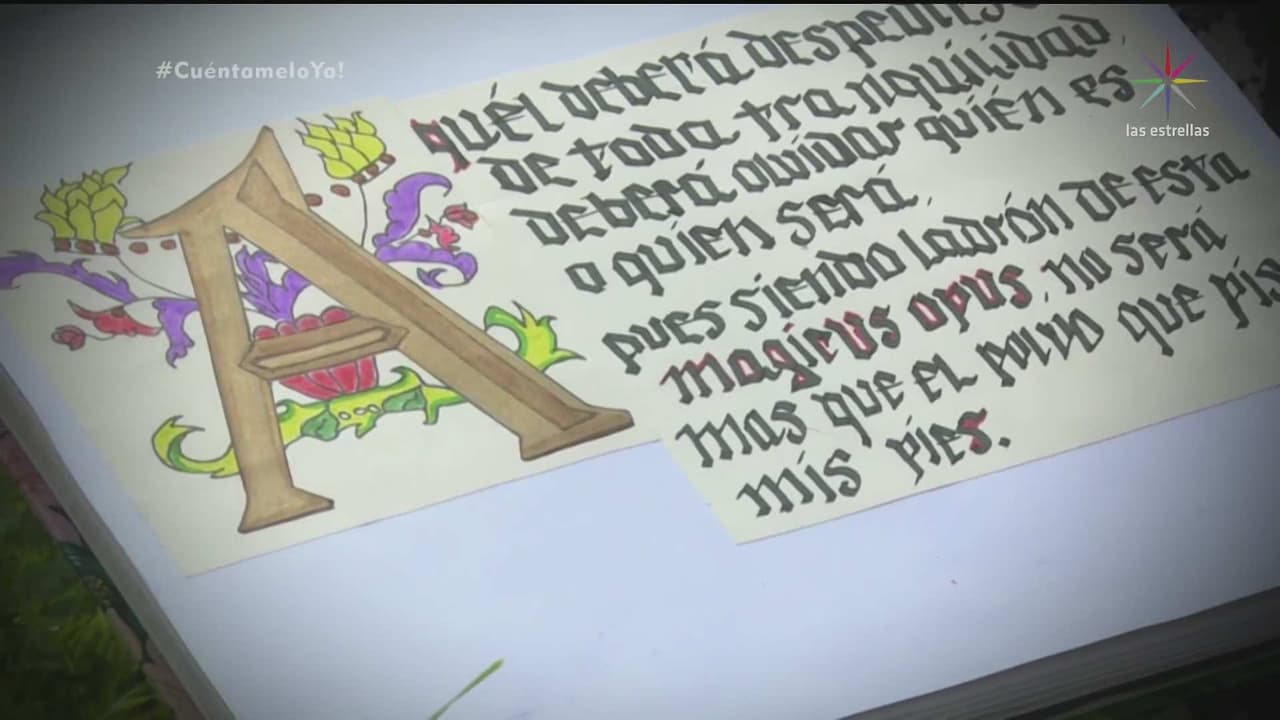 #CuéntameloYa!
las estrellas
Aquél deberá despedirse
de toda tranquilidad,
deberá olvidar quién es
o quien será,
pues siendo ladrón de esta
magicus opus, no será
mas que el polvo que
mis pies.